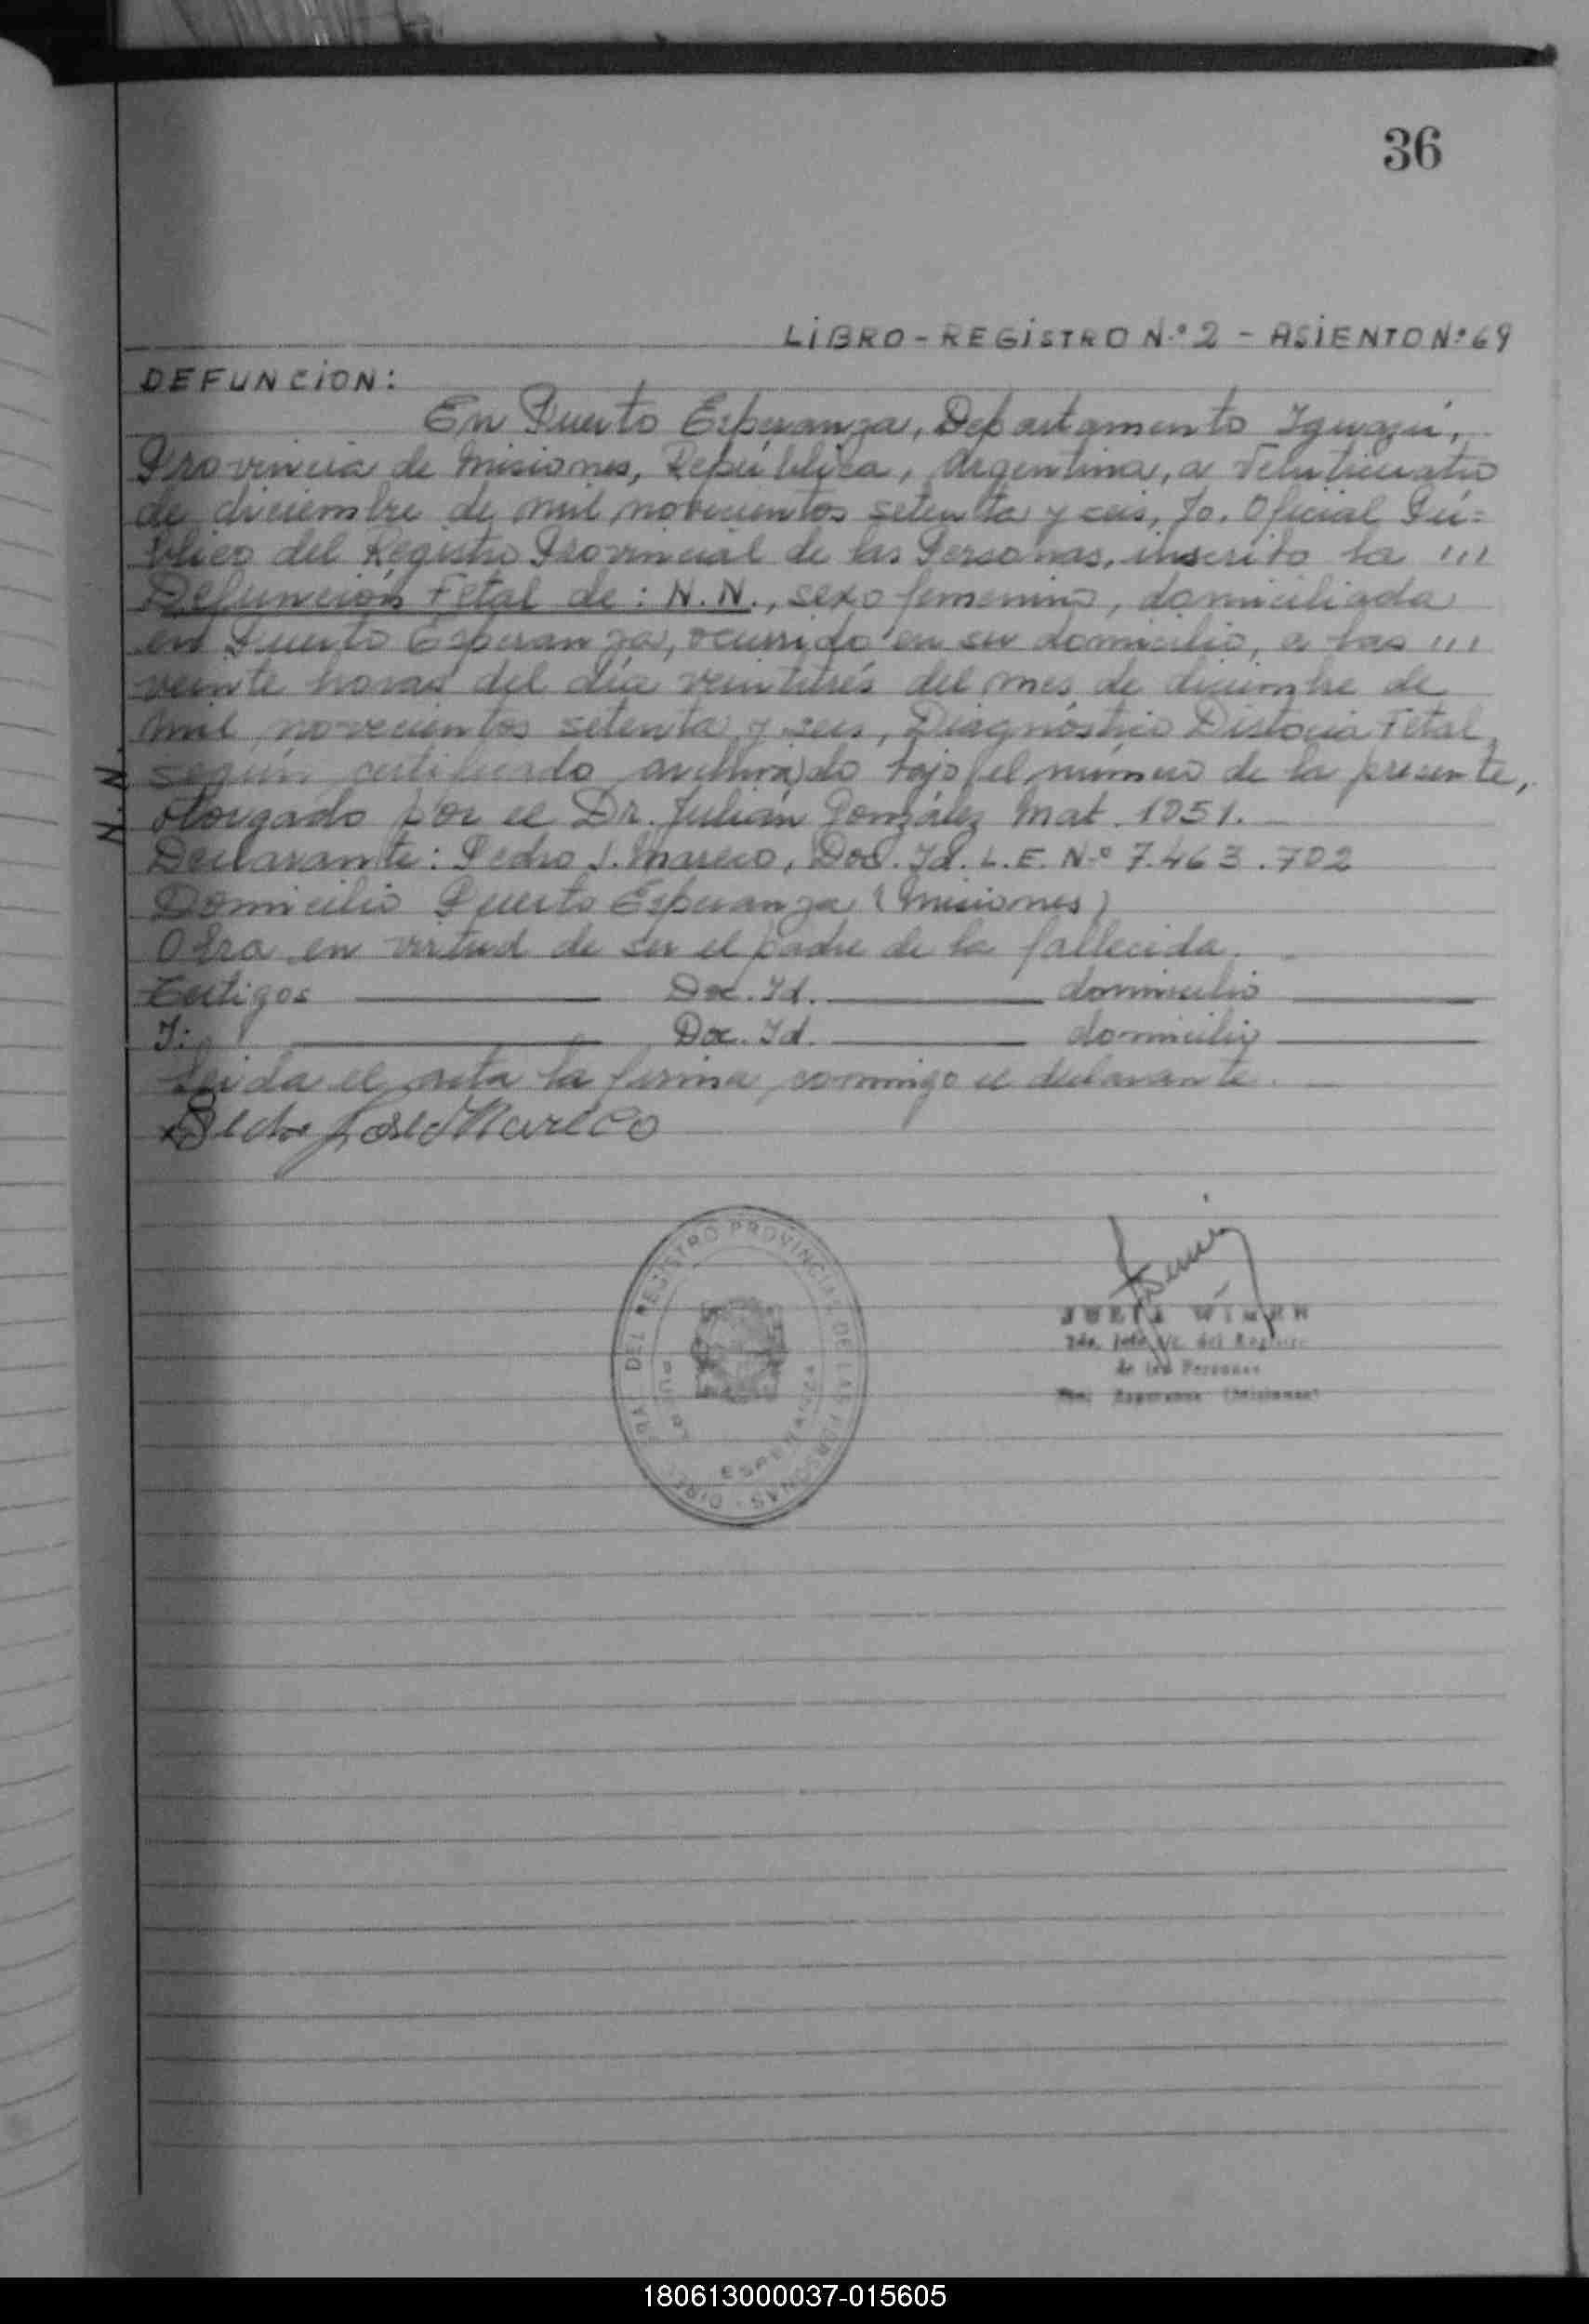 36
LiBRO-REGiSTRO N.º 2 - ASiENTO Nº 69
DEFUNCiON:
En Puerto Esperanza, Departamento Iguazú,
Provincia de Misiones, República, Argentina, a veinticuatro
de diciembre de mil novecientos setenta y seis, Yo. Oficial Pú=
blico del Registro Provincial de las Personas, inscribo la '''
Defunción Fetal de: N.N., sexo femenino, domiciliada
en Puerto Esperanza, ocurrido en su domicilio, a las '''
veinte horas del día veintitrés del mes de diciembre de
mil novecientos setenta y seis, Diagnóstico Distocia Fetal,
según certificado archivado bajo el número de la presente,
otorgado por el Dr. Julián González Mat. 1051.
N.N.
Declarante: Pedro J. Mareco, Doc. Id. L.E. Nº 7.463.702
Domicilio Puerto Esperanza (Misiones)
Obra en virtud de ser el padre de la fallecida.
Testigos Doc. Id. domicilio
Y: Doc. Id. domicilio
Leida el acta la firma conmigo el declarante.
Pedro José Mareco
DEL REGISTRO PROVINCIAL DE LAS PERSONAS - DIREC
ESPERANZA
JULIA
2do. Jefe del Registro
de las Personas
Esperanza (Misiones)
180613000037-015605